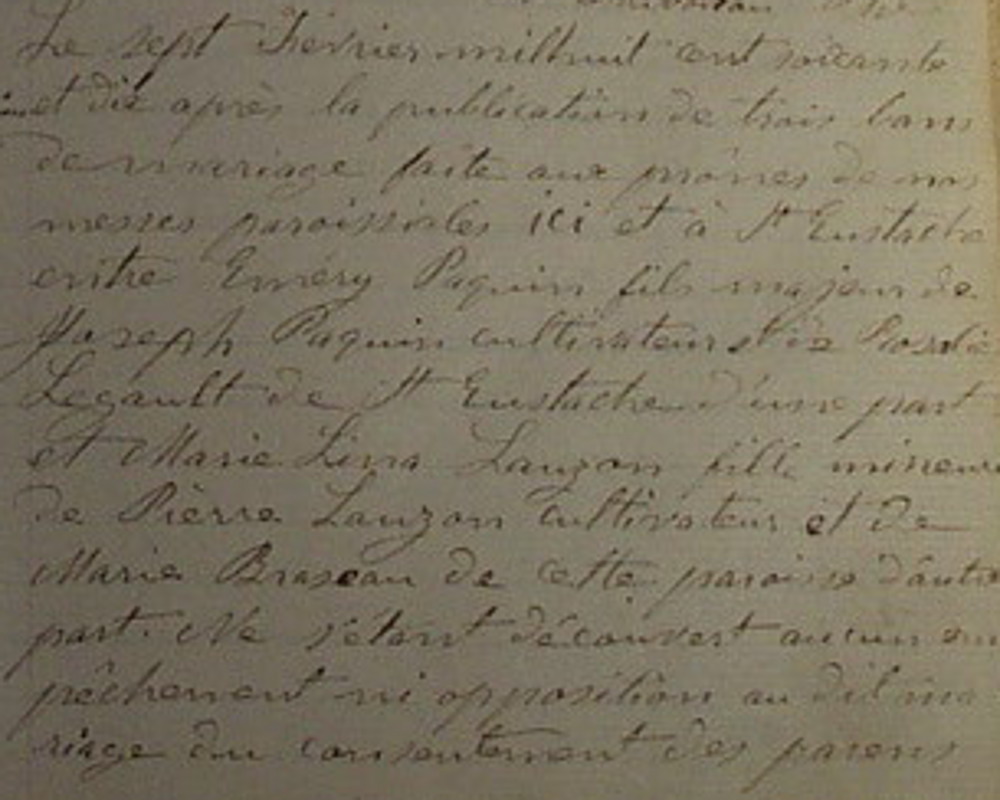 Le sept Février mil huit cent soixante
et dix après la publication de trois bans
de mariage faite aux prônes de nos
messes paroissiales ici et à St Eustache
entre Emery Paquin fils majeur de
Joseph Paquin cultivateur et de Rosalie
Legault de St Eustache d'une part
et Marie Lina Lauzon fille mineure
de Pierre Lauzon cultivateur et de
Marie Braseau de cette paroisse d'autre
part. Ne s'étant découvert aucun em
pêchement ni opposition au dit ma
riage du consentement des parens